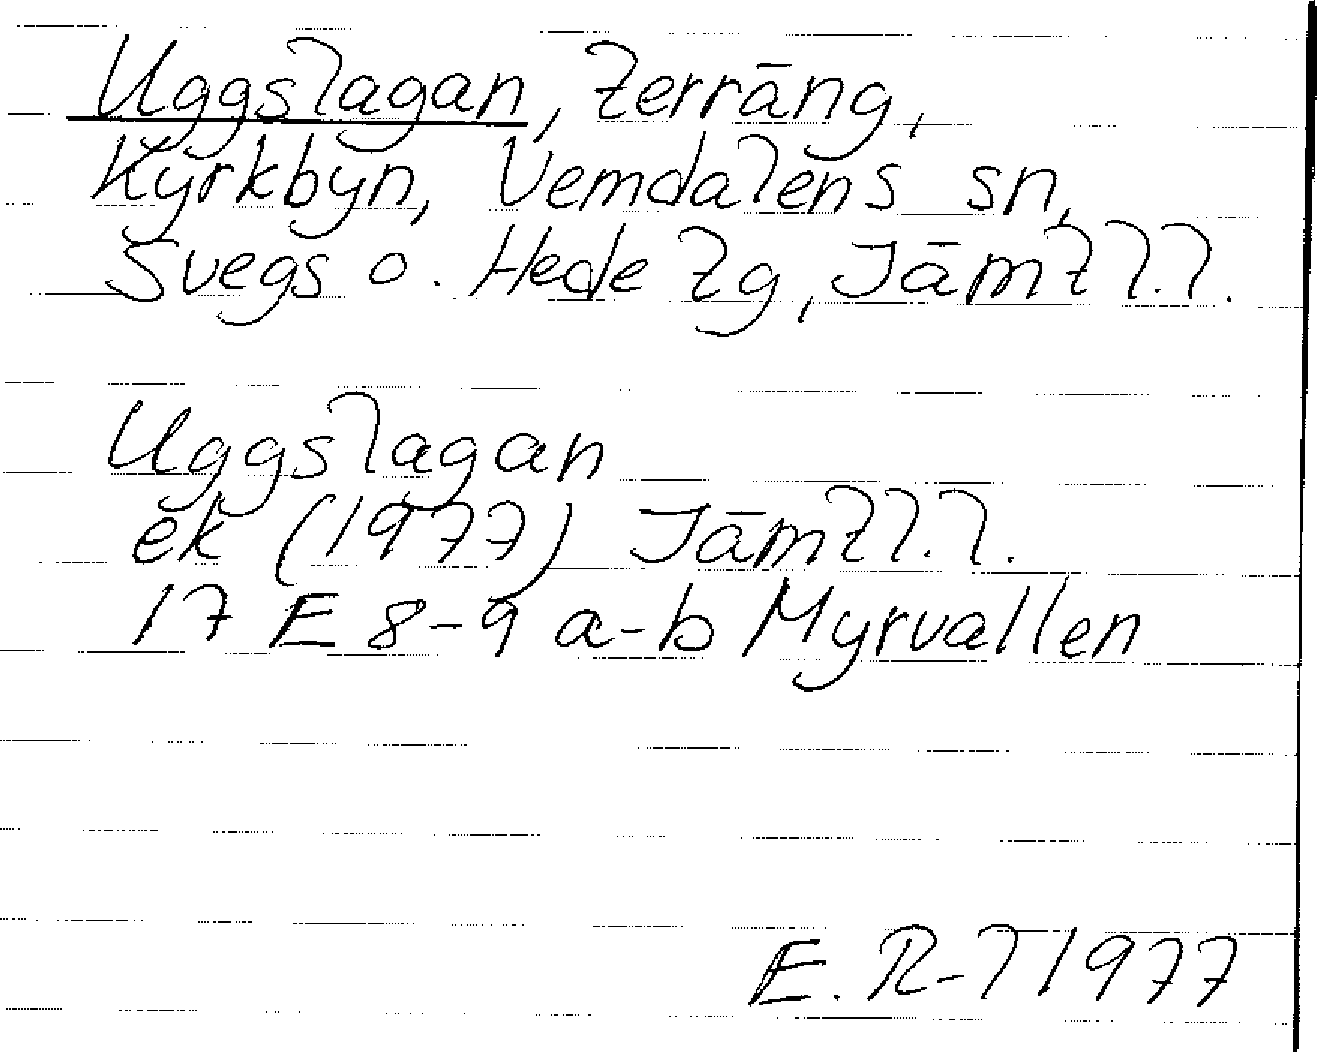 Uggslagan, terräng,
Kyrkbyn, Vemdalens sn,
Svegs o. Hede tg, Jämtl. l.
Uggslagan
ek (1977) Jämtl. l.
17 E 8-9 a-b Myrvallen
E. R-l 1977